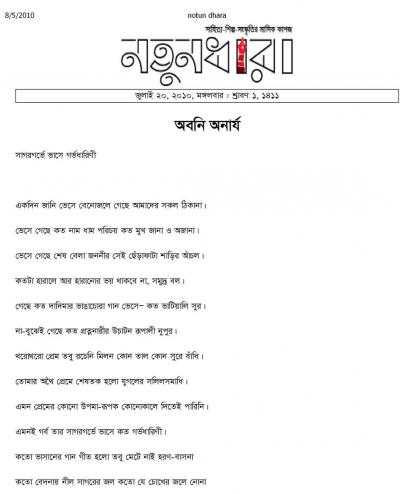 8/5/2010 notun dhara
সাহিত্য-শিল্প-সংস্কৃতির মাসিক কাগজ
নতুনধারা
জুলাই ২০, ২০১০, মঙ্গলবার : শ্রাবণ ১, ১৪১১
অবনি অনার্য
সাগরগর্ভে ভাসে গর্ভধারিণী
একদিন জানি ভেসে বেনোজলে গেছে আমাদের সকল ঠিকানা।
ভেসে গেছে কত নাম ধাম পরিচয় কত মুখ জানা ও অজানা।
ভেসে গেছে শেষ বেলা জননীর সেই ছেঁড়াফাটা শাড়ির আঁচল।
কতটা হারালে আর হারানোর ভয় থাকবে না, সমুদ্র বল।
গেছে কত দাদিমার ভাঙাচোরা গান ভেসে– কত ভাটিয়ালি সুর।
না-বুঝেই গেছে কত প্রত্ননারীর উচাটন রূপালী নুপুর।
থরোথরো প্রেম তবু রচেনি মিলন কোন তাল কোন সুরে বাঁধি।
তোমার অথৈ প্রেমে শেষতক হলো যুগলের সলিলসমাধি।
এমন প্রেমের কোনো উপমা-রূপক কোনোকালে দিতেই পারিনি।
এমনই গর্ব তার সাগরগর্ভে ভাসে কত গর্ভধারিণী।
কতো ভাসানের গান গীত হলো তবু মেটে নাই হরণ-বাসনা
কতো বেদনায় নীল সাগরের জল কতো যে চোখের জলে নোনা